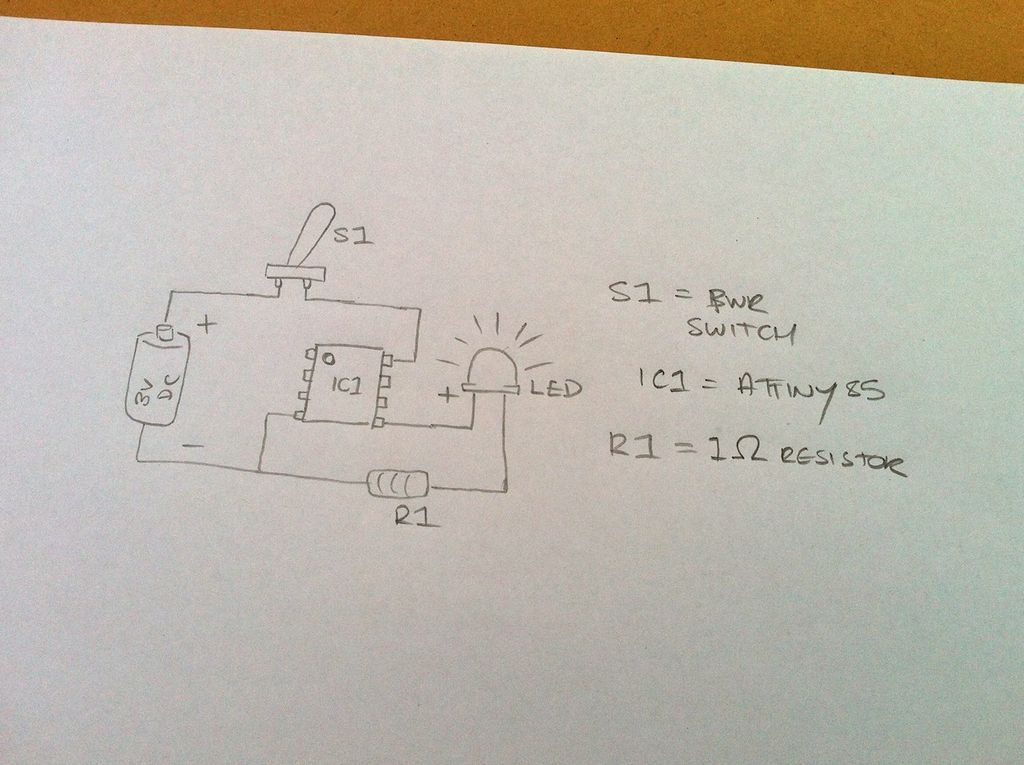 S1
+
3V
DC
IC1
+
LED
−
R1
S1 = PWR
SWITCH
IC1 = ATTINY85
R1 = 1Ω RESISTOR